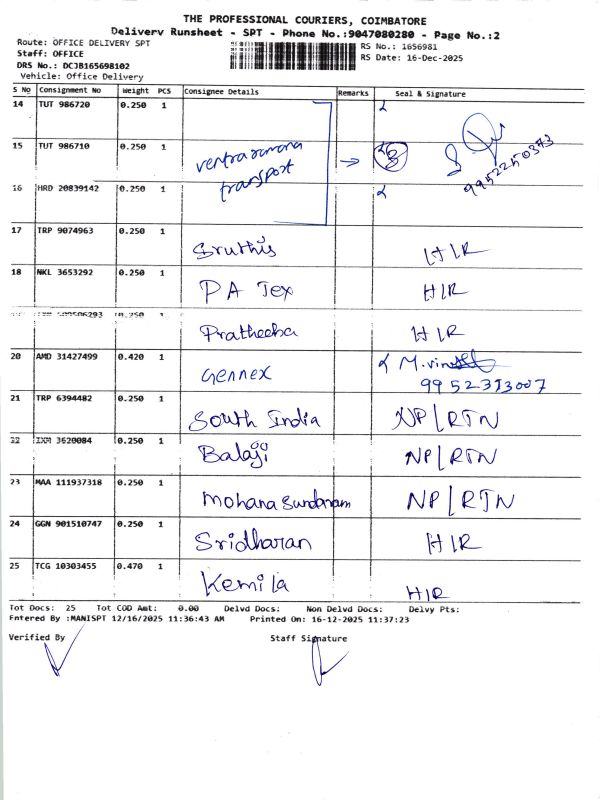 THE PROFESSIONAL COURIERS, COIMBATORE
Delivery Runsheet - SPT - Phone No.:9047080280 - Page No.:2
Route: OFFICE DELIVERY SPT
Staff: OFFICE
DRS No.: DCJB165698102
Vehicle: Office Delivery
RS No.: 1656981
RS Date: 16-Dec-2025
S No Consignment No Weight PCS Consignee Details Remarks Seal & Signature
14 TUT 986720 0.250 1
15 TUT 986710 0.250 1
transport
9952250373
16 HRD 20839142 0.250 1
17 TRP 9074963 0.250 1
Sruthis HIR
18 NKL 3653292 0.250 1
PA Tex HIR
Pratheeba HIR
20 AMD 31427499 0.420 1
Gennex
9952313007
21 TRP 6394482 0.250 1
South India NP/RTN
22 IXM 3620084 0.250 1
Balaji NP/RTN
23 MAA 111937318 0.250 1
Mohana Sundaram NP/RTN
24 GGN 901510747 0.250 1
Sridharan HIR
25 TCG 10303455 0.470 1
Kemila HIR
Tot Docs: 25 Tot COD Amt: 0.00 Delvd Docs: Non Delvd Docs: Delvy Pts:
Entered By :MANISPT 12/16/2025 11:36:43 AM Printed On: 16-12-2025 11:37:23
Verified By Staff Signature